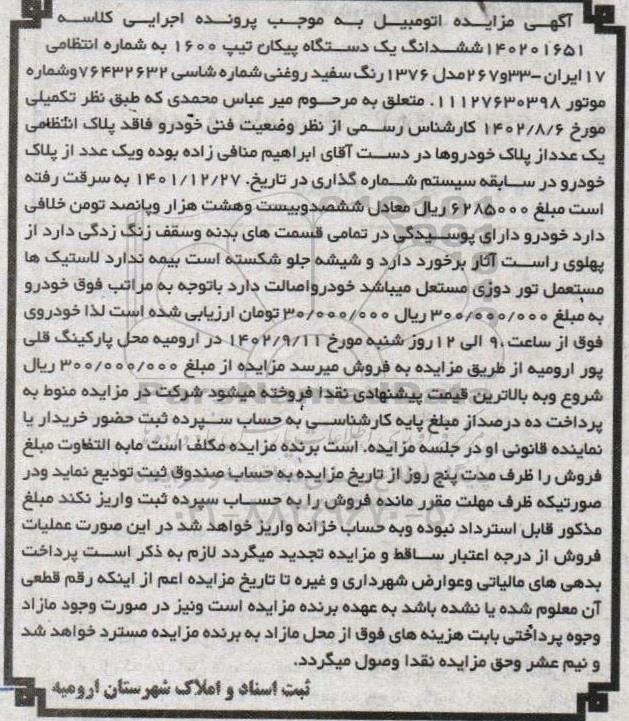 آگهی مزایده اتومبیل به موجب پرونده اجرایی کلاسه
۱۴۰۲۰۱۶۵۱ششدانگ یک دستگاه پیکان تیپ ۱۶۰۰ به شماره انتظامی
۱۷ایران -۳۳و۲۶۷مدل ۱۳۷۶رنگ سفید روغنی شماره شاسی ۷۶۴۳۲۶۳۲وشماره
موتور ۱۱۱۲۷۶۳۰۳۹۸. متعلق به مرحوم میر عباس محمدی که طبق نظر تکمیلی
مورخ ۱۴۰۲/۸/۶ کارشناس رسمی از نظر وضعیت فنی خودرو فاقد پلاک انتظامی
یک عدداز پلاک خودروها در دست آقای ابراهیم منافی زاده بوده ویک عدد از پلاک
خودرو در سابقه سیستم شماره گذاری در تاریخ. ۱۴۰۱/۱۲/۲۷ به سرقت رفته
است مبلغ ۶۲۸۵۰۰۰ ریال معادل ششصدوبیست وهشت هزار وپانصد تومن خلافی
دارد خودرو دارای پوسیدگی در تمامی قسمت های بدنه وسقف زنگ زدگی دارد از
پهلوی راست آثار برخورد دارد و شیشه جلو شکسته است بیمه ندارد لاستیک ها
مستعمل تور دوزی مستعل میباشد خودرواصالت دارد باتوجه به مراتب فوق خودرو
به مبلغ ۳۰۰/۰۰۰/۰۰۰ ریال ۳۰/۰۰۰/۰۰۰ تومان ارزیابی شده است لذا خودروی
فوق از ساعت.۹ الی ۱۲روز شنبه مورخ ۱۴۰۲/۹/۱۱ در ارومیه محل پارکینگ قلی
پور ارومیه از طریق مزایده به فروش میرسد مزایده از مبلغ ۳۰۰/۰۰۰/۰۰۰ ریال
شروع وبه بالاترین قیمت پیشنهادی نقدا فروخته میشود شرکت در مزایده منوط به
پرداخت ده درصداز مبلغ پایه کارشناسی به حساب سپرده ثبت حضور خریدار یا
نماینده قانونی او در جلسه مزایده. است برنده مزایده مکلف است مابه التفاوت مبلغ
فروش را ظرف مدت پنج روز از تاریخ مزایده به حساب صندوق ثبت تودیع نماید ودر
صورتیکه ظرف مهلت مقرر مانده فروش را به حساب سپرده ثبت واریز نکند مبلغ
مذکور قابل استرداد نبوده وبه حساب خزانه واریز خواهد شد در این صورت عملیات
فروش از درجه اعتبار ساقط و مزایده تجدید میگردد لازم به ذکر است پرداخت
بدهی های مالیاتی وعوارض شهرداری و غیره تا تاریخ مزایده اعم از اینکه رقم قطعی
آن معلوم شده یا نشده باشد به عهده برنده مزایده است ونیز در صورت وجود مازاد
وجوه پرداختی بابت هزینه های فوق از محل مازاد به برنده مزایده مسترد خواهد شد
و نیم عشر وحق مزایده نقدا وصول میگردد.
ثبت اسناد و املاک شهرستان ارومیه